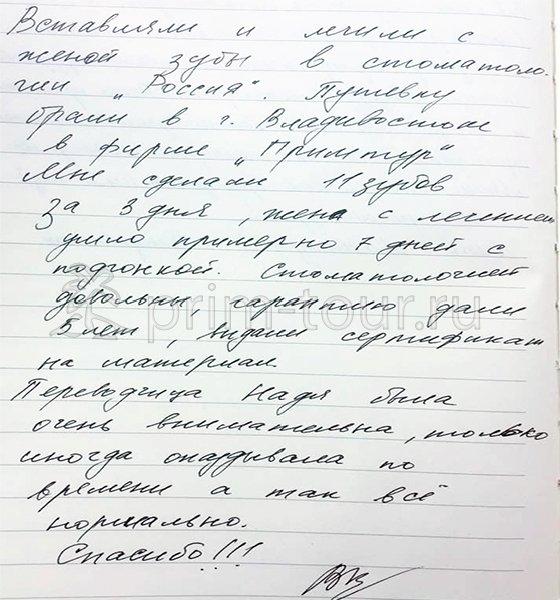 Вставляли и лечили с
женой зубы в стоматоло-
гии „Россия“. Путевку
брали в г. Владивостоке
в фирме „Примтур“
Мне сделали 11 зубов
за 3 дня, жена с лечением
ушло примерно 7 дней с
подгонкой. Стоматологией
довольны, гарантию дали
5 лет, выдали сертификат
на материал.
Переводчица Надя была
очень внимательна, только
иногда опаздывала по
времени а так всё
нормально.
Спасибо!!!
prim-tour.ru